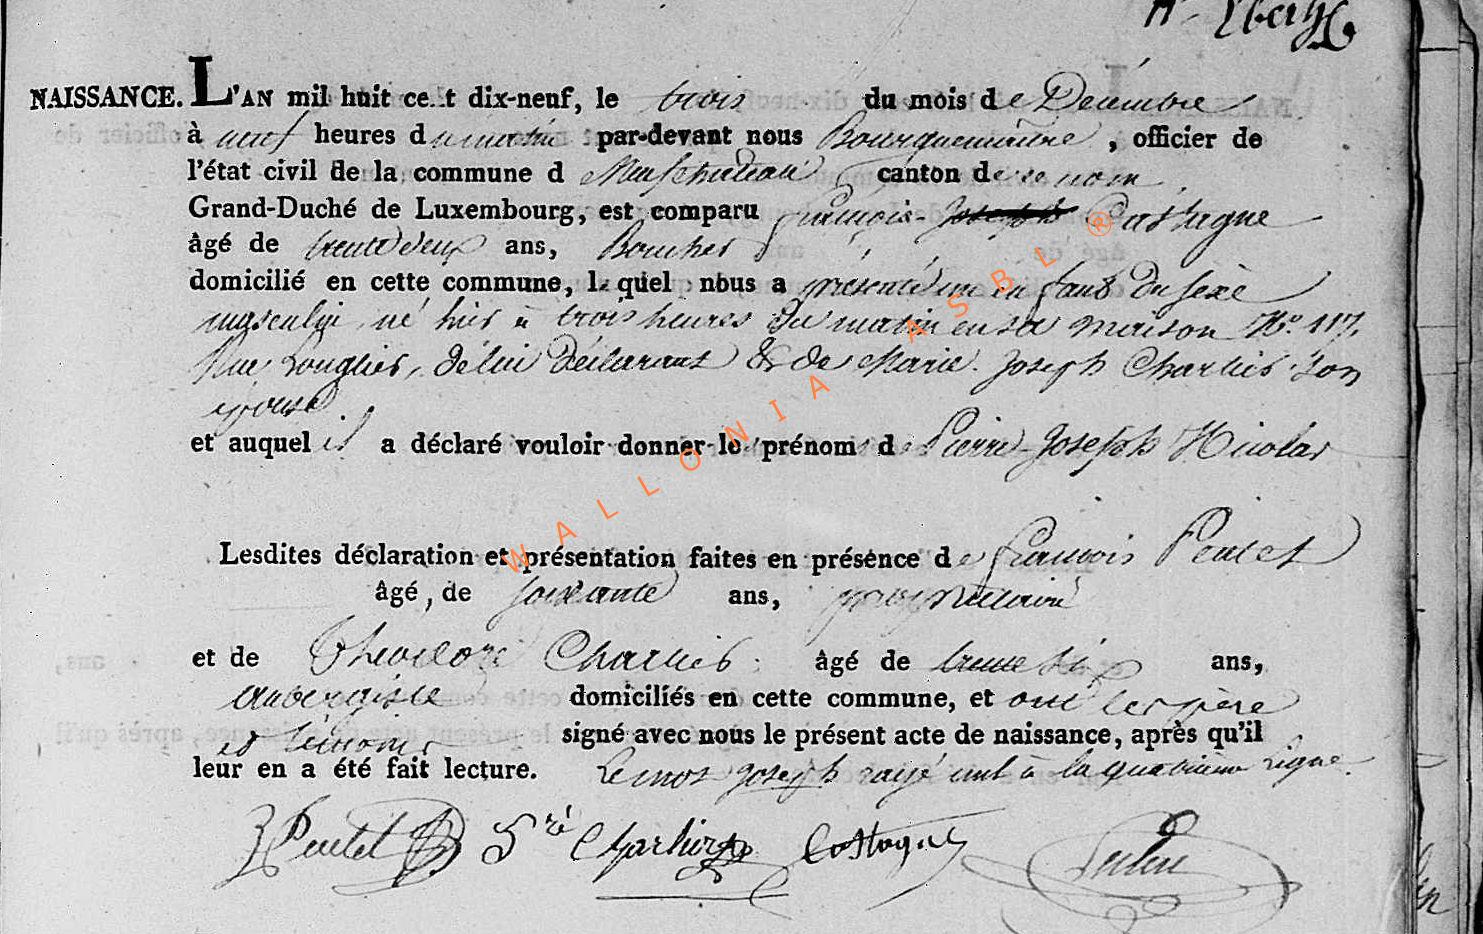 NAISSANCE. L'AN mil huit cent dix-neuf, le trois du mois de Décembre
à neuf heures du matin par-devant nous Bourguemaitre, officier de
l'état civil de la commune d Neufchateau canton de ce nom,
Grand-Duché de Luxembourg, est comparu françois-Joseph Castagne
âgé de trente deux ans, Boucher
domicilié en cette commune, lequel nous a présenté un enfant du sexe
masculin, né hier à trois heures du matin en sa maison No. 117,
Rue Longlier, de lui déclarant & de Marie Joseph Charlier son
épouse
et auquel il a déclaré vouloir donner les prénoms de Pierre-Joseph Nicolas
Lesdites déclaration et présentation faites en présence de françois Pentet
âgé, de soixante ans, propriétaire
et de Théodore Charlier âgé de trente six ans,
aubergiste domiciliés en cette commune, et ont les père
et témoins signé avec nous le présent acte de naissance, après qu'il
leur en a été fait lecture. Le mot Joseph rayé nul à la quatrieme Ligne.
Pentet Charlier Castagne
WALLONIA ASBL ®